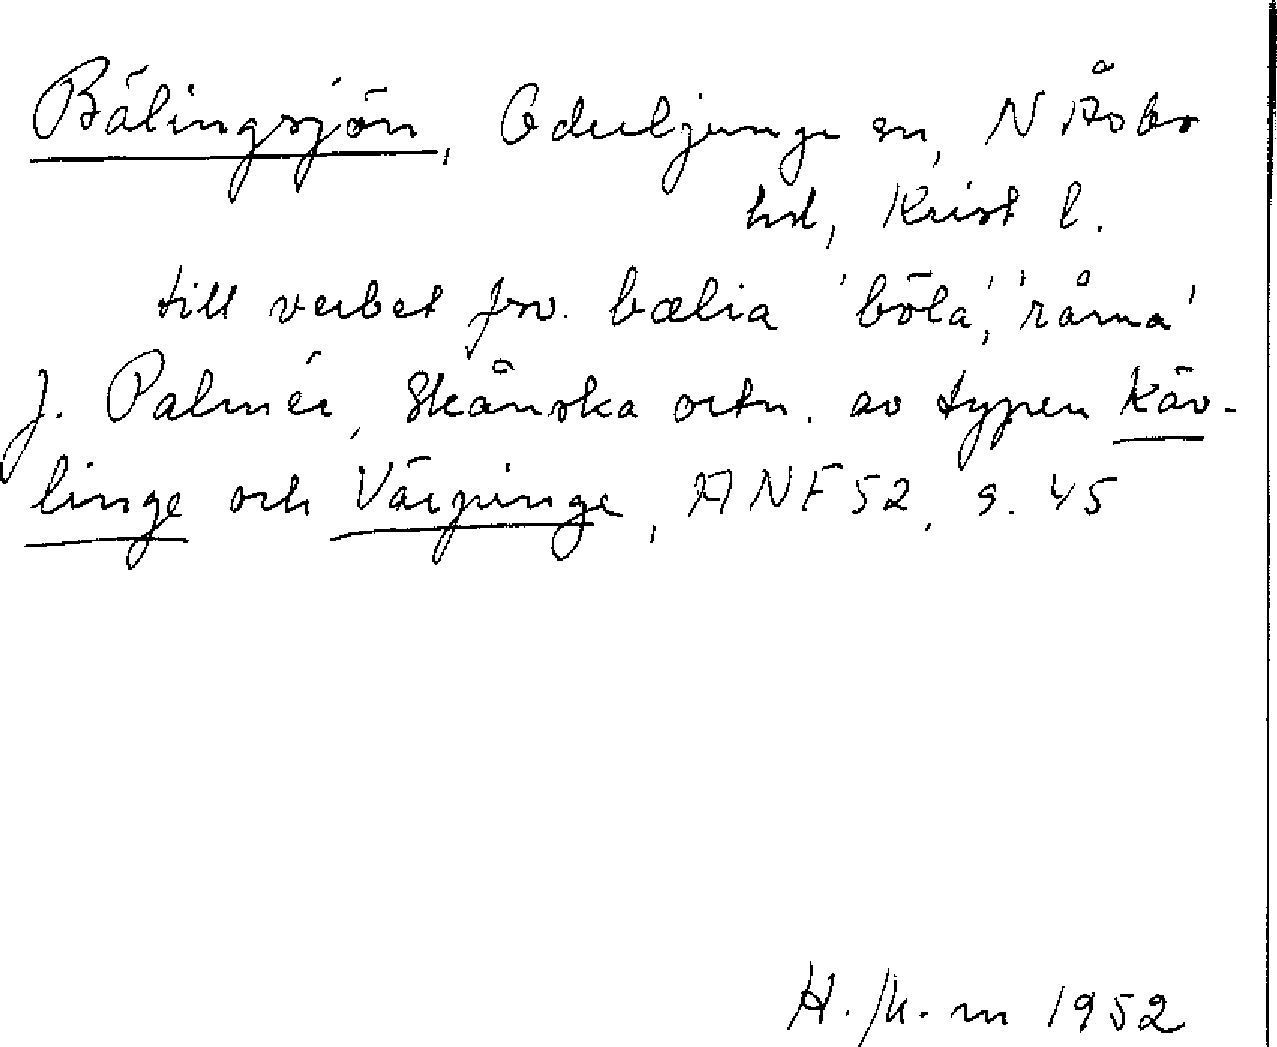 Bälingsjön, Oderljunga sn, N Åsbo
hd, Krist l.
till verbet fsv. bælia 'böla', 'råma'
J. Palmér, Skånska ortn. av typen Käv-
linge och Värpinge, ANF 52, s. 45
H. /k. m 1952